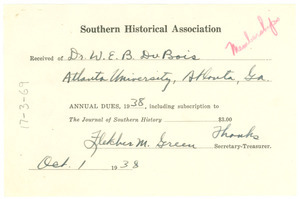 Southern Historical Association
Membership
Received of Dr. W. E. B. DuBois
Atlanta University, Atlanta, Ga.
ANNUAL DUES, 1938, including subscription to
The Journal of Southern History $3.00
Thanks
Fletcher M. Green
Secretary-Treasurer.
Oct. 1 1938
17-3-69